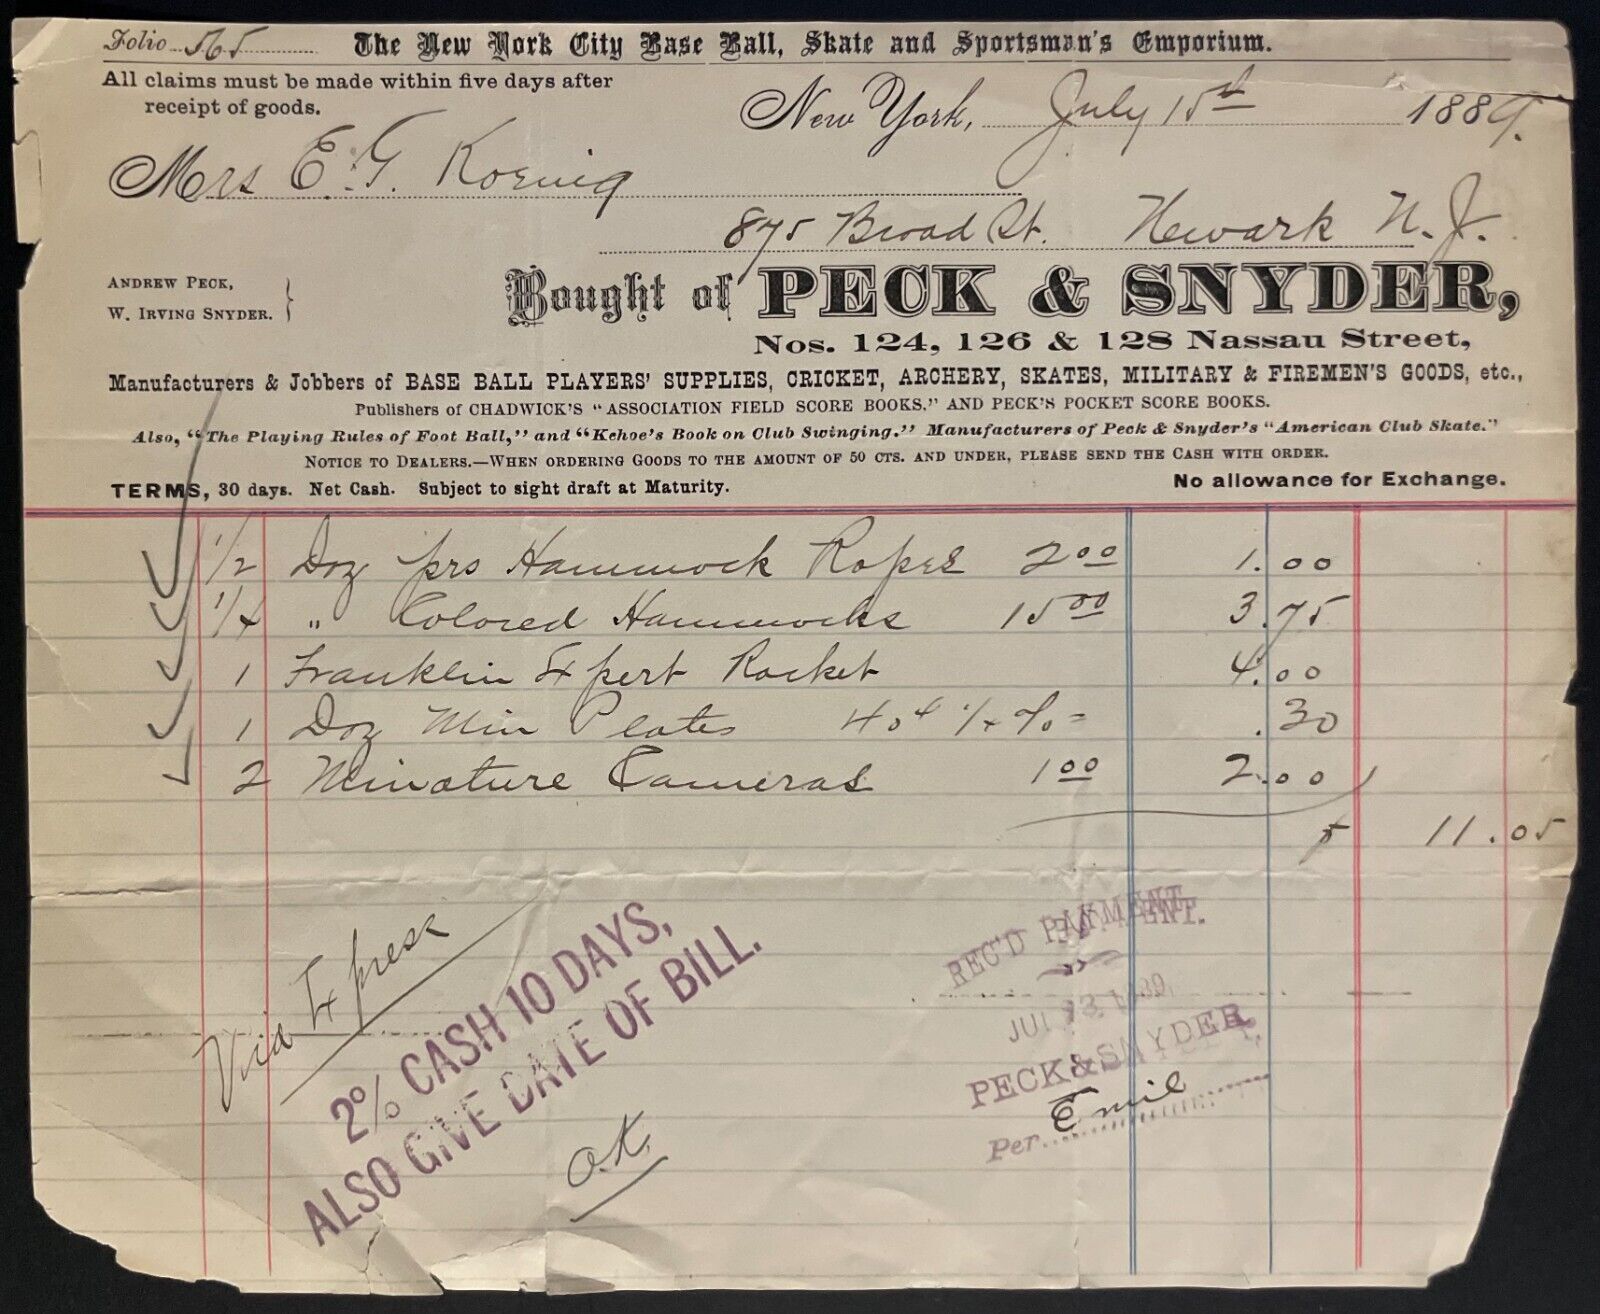 Folio 565 The New York City Base Ball, Skate and Sportsman's Emporium.
All claims must be made within five days after
receipt of goods.
New York, July 15th 1889.
Mrs E. G. Koenig
875 Broad St. Newark N. J.
ANDREW PECK,
W. IRVING SNYDER.
Bought of PECK & SNYDER,
Nos. 124, 126 & 128 Nassau Street,
Manufacturers & Jobbers of BASE BALL PLAYERS' SUPPLIES, CRICKET, ARCHERY, SKATES, MILITARY & FIREMEN'S GOODS, etc.,
Publishers of CHADWICK'S "ASSOCIATION FIELD SCORE BOOKS," AND PECK'S POCKET SCORE BOOKS.
Also, "The Playing Rules of Foot Ball," and "Kehoe's Book on Club Swinging." Manufacturers of Peck & Snyder's "American Club Skate."
NOTICE TO DEALERS.—WHEN ORDERING GOODS TO THE AMOUNT OF 50 CTS. AND UNDER, PLEASE SEND THE CASH WITH ORDER.
TERMS, 30 days. Net Cash. Subject to sight draft at Maturity. No allowance for Exchange.
1/2 Doz prs Hammock Ropes 2.00 1.00
1/4 " Colored Hammocks 15.00 3.75
1 Franklin Expert Racket 4.00
1 Doz Min Plates 40¢ 1/4 % = .30
2 Minature Cameras 1.00 2.00
11.05
Via Express
2% CASH 10 DAYS,
ALSO GIVE DATE OF BILL.
O.K.
REC'D PAYMENT.
PECK & SNYDER,
Per Emil